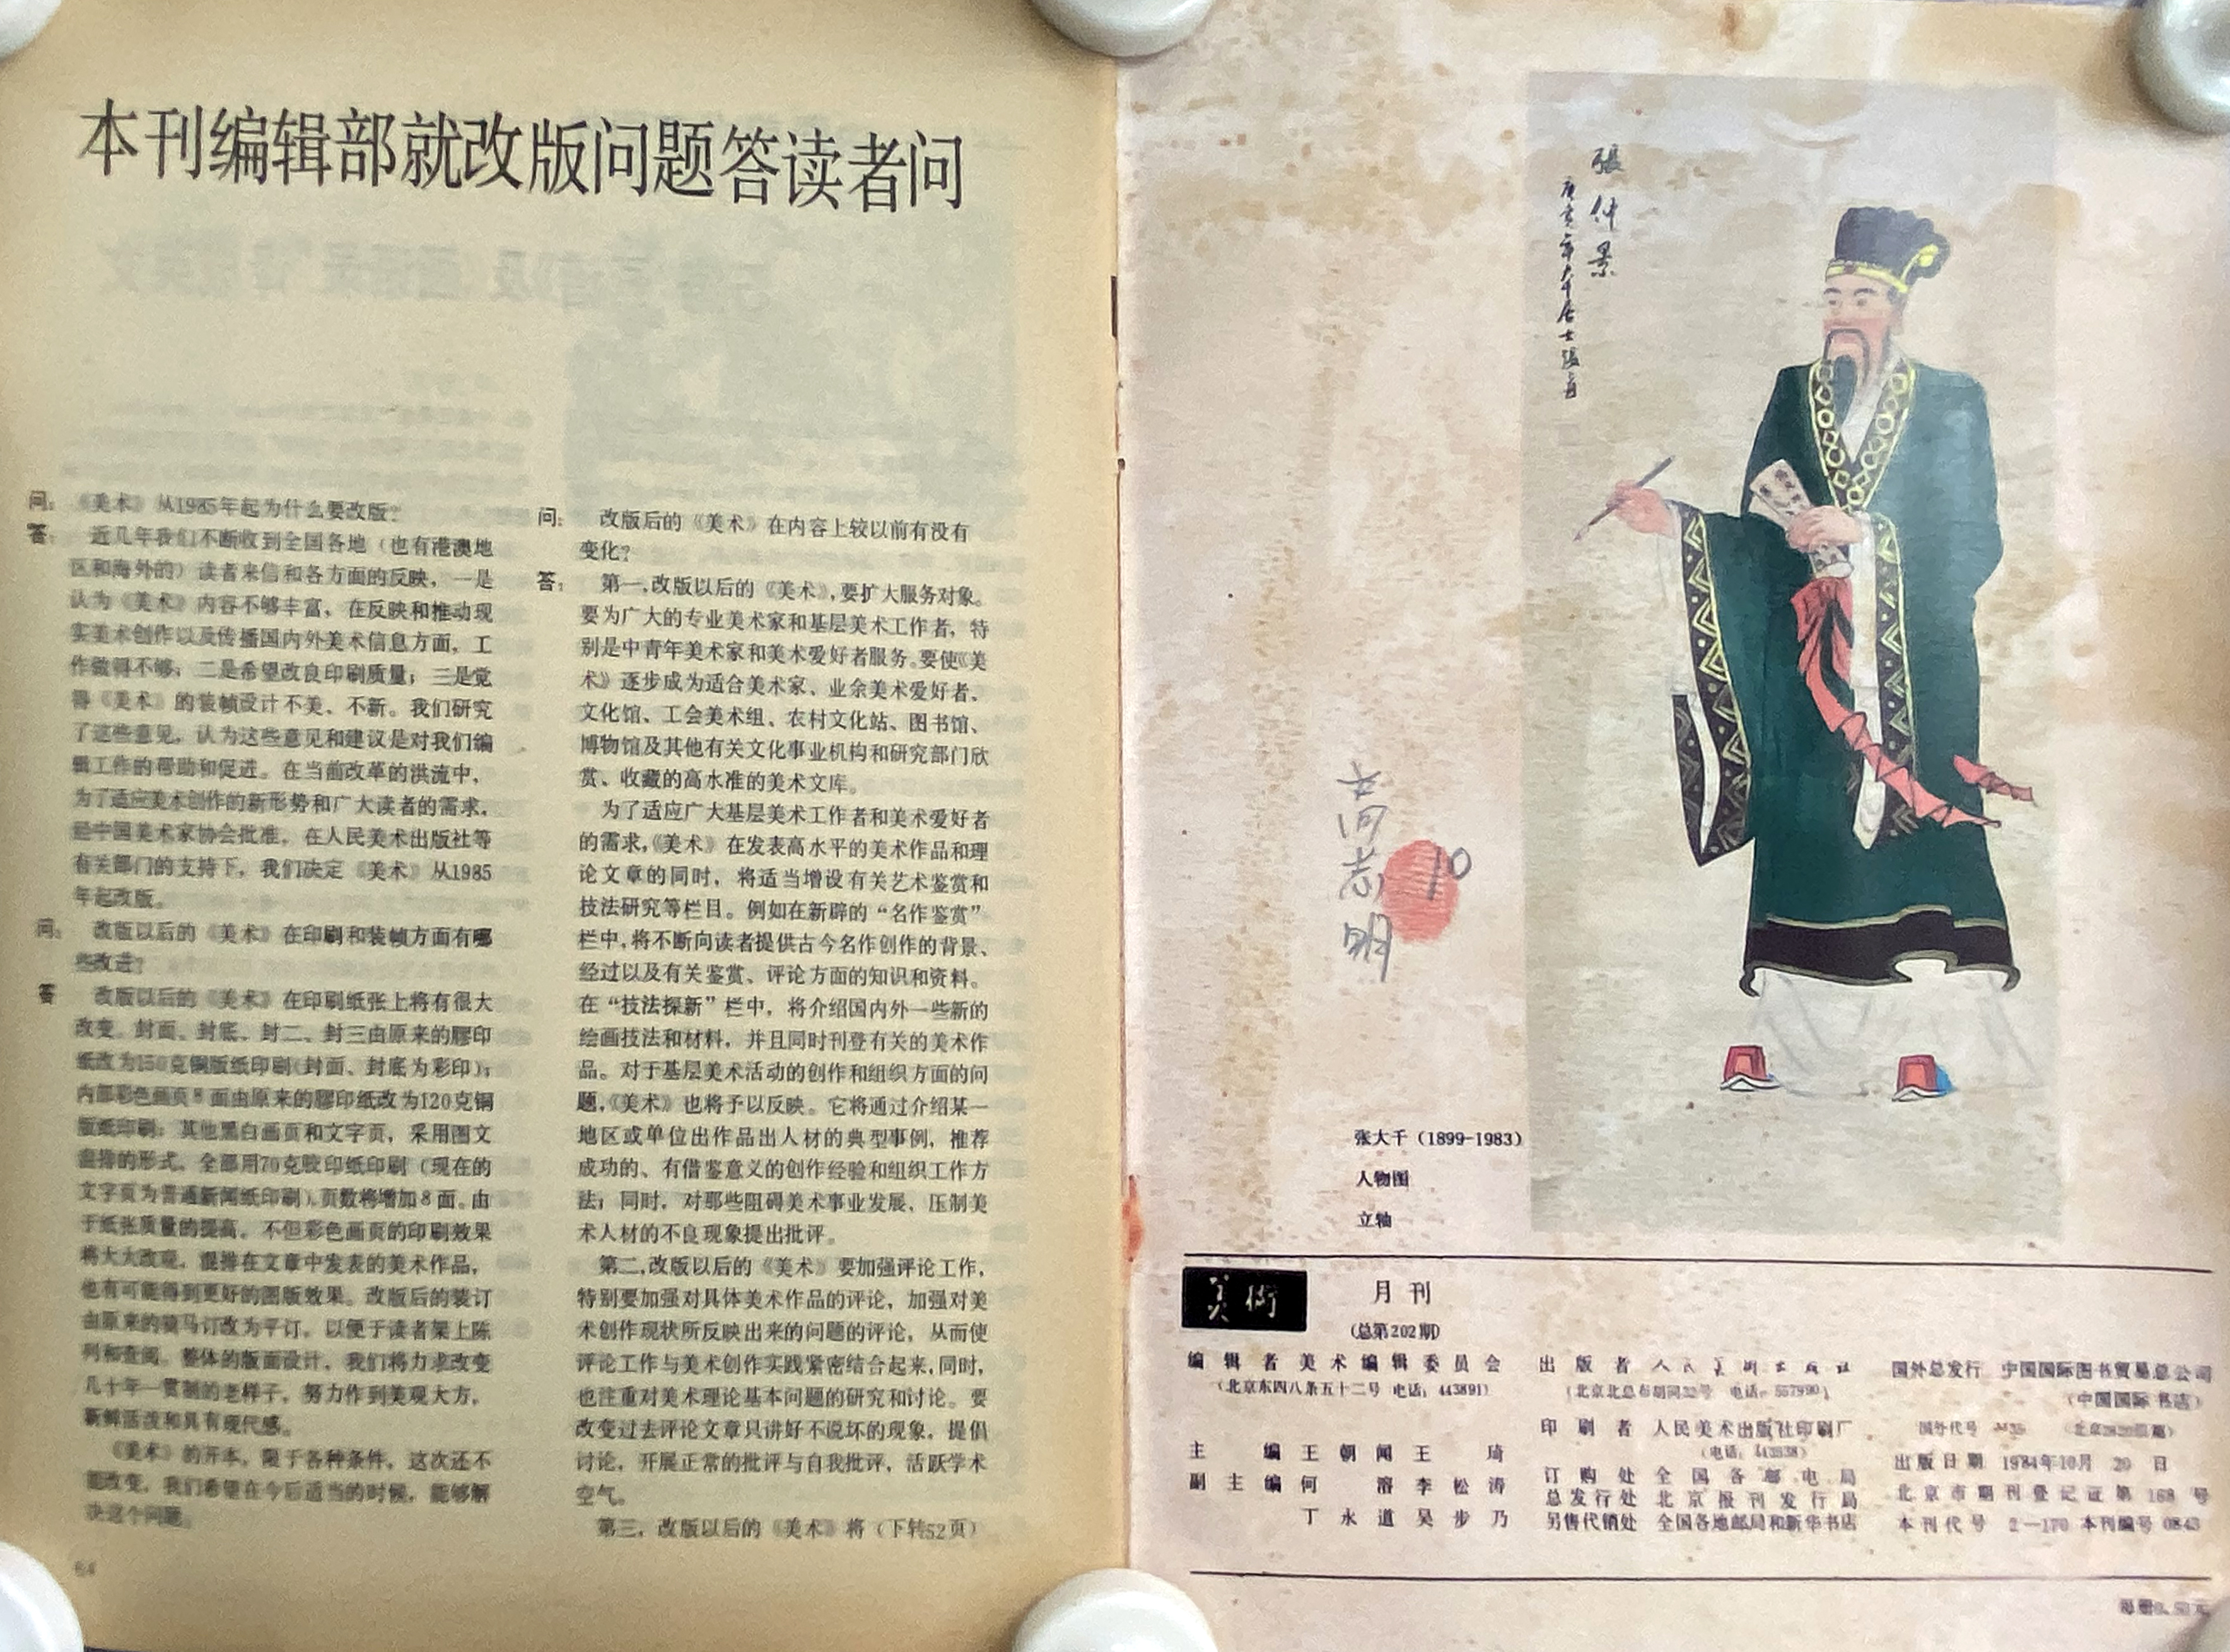 本刊编辑部就改版问题答读者问
问：《美术》从1985年起为什么要改版？
答：近几年我们不断收到全国各地（也有港澳地
区和海外的）读者来信和各方面的反映，一是
认为《美术》内容不够丰富，在反映和推动现
实美术创作以及传播国内外美术信息方面，工
作做得不够；二是希望改良印刷质量；三是觉
得《美术》的装帧设计不美、不新。我们研究
了这些意见，认为这些意见和建议是对我们编
辑工作的帮助和促进。在当前改革的洪流中，
为了适应美术创作的新形势和广大读者的需求，
经中国美术家协会批准，在人民美术出版社等
有关部门的支持下，我们决定《美术》从1985
年起改版。
问：改版以后的《美术》在印刷和装帧方面有哪
些改进？
答 改版以后的《美术》在印刷纸张上将有很大
改变。封面、封底、封二、封三由原来的胶印
纸改为150克铜版纸印刷（封面、封底为彩印）；
内部彩色画页8面由原来的胶印纸改为120克铜
版纸印刷；其他黑白画页和文字页，采用图文
混排的形式，全部用70克胶印纸印刷（现在的
文字页为普通新闻纸印刷），页数将增加8面。由
于纸张质量的提高，不但彩色画页的印刷效果
将大大改观，混排在文章中发表的美术作品，
也有可能得到更好的图版效果。改版后的装订
由原来的骑马订改为平订，以便于读者架上陈
列和查阅。整体的版面设计，我们将力求改变
几十年一贯制的老样子，努力作到美观大方，
新鲜活泼和具有现代感。
《美术》的开本，限于各种条件，这次还不
能改变，我们希望在今后适当的时候，能够解
决这个问题。
64
问：改版后的《美术》在内容上较以前有没有
变化？
答：第一，改版以后的《美术》，要扩大服务对象。
要为广大的专业美术家和基层美术工作者，特
别是中青年美术家和美术爱好者服务。要使《美
术》逐步成为适合美术家、业余美术爱好者、
文化馆、工会美术组、农村文化站、图书馆、
博物馆及其他有关文化事业机构和研究部门欣
赏、收藏的高水准的美术文库。
为了适应广大基层美术工作者和美术爱好者
的需求，《美术》在发表高水平的美术作品和理
论文章的同时，将适当增设有关艺术鉴赏和
技法研究等栏目。例如在新辟的“名作鉴赏”
栏中，将不断向读者提供古今名作创作的背景、
经过以及有关鉴赏、评论方面的知识和资料。
在“技法探新”栏中，将介绍国内外一些新的
绘画技法和材料，并且同时刊登有关的美术作
品。对于基层美术活动的创作和组织方面的问
题，《美术》也将予以反映。它将通过介绍某一
地区或单位出作品出人材的典型事例，推荐
成功的、有借鉴意义的创作经验和组织工作方
法；同时，对那些阻碍美术事业发展、压制美
术人材的不良现象提出批评。
第二，改版以后的《美术》要加强评论工作，
特别要加强对具体美术作品的评论，加强对美
术创作现状所反映出来的问题的评论，从而使
评论工作与美术创作实践紧密结合起来，同时，
也注重对美术理论基本问题的研究和讨论。要
改变过去评论文章只讲好不说坏的现象，提倡
讨论，开展正常的批评与自我批评，活跃学术
空气。
第三，改版以后的《美术》将（下转52页）
張仲景
大千居士張爰
10
张大千（1899-1983）
人物图
立轴
美術
月刊
（总第202期）
编辑者 美术编辑委员会
（北京东四八条五十二号 电话：443891）
主编 王朝闻 王琦
副主编 何溶 李松涛
丁永道 吴步乃
出版者 人民美术出版社
（北京北总布胡同32号 电话：557990）
印刷者 人民美术出版社印刷厂
订购处 全国各邮电局
总发行处 北京报刊发行局
另售代销处 全国各地邮局和新华书店
国外总发行 中国国际图书贸易总公司
（中国国际书店）
国外代号
出版日期 1984年10月20日
北京市期刊登记证第168号
本刊代号 2—170 本刊编号0843